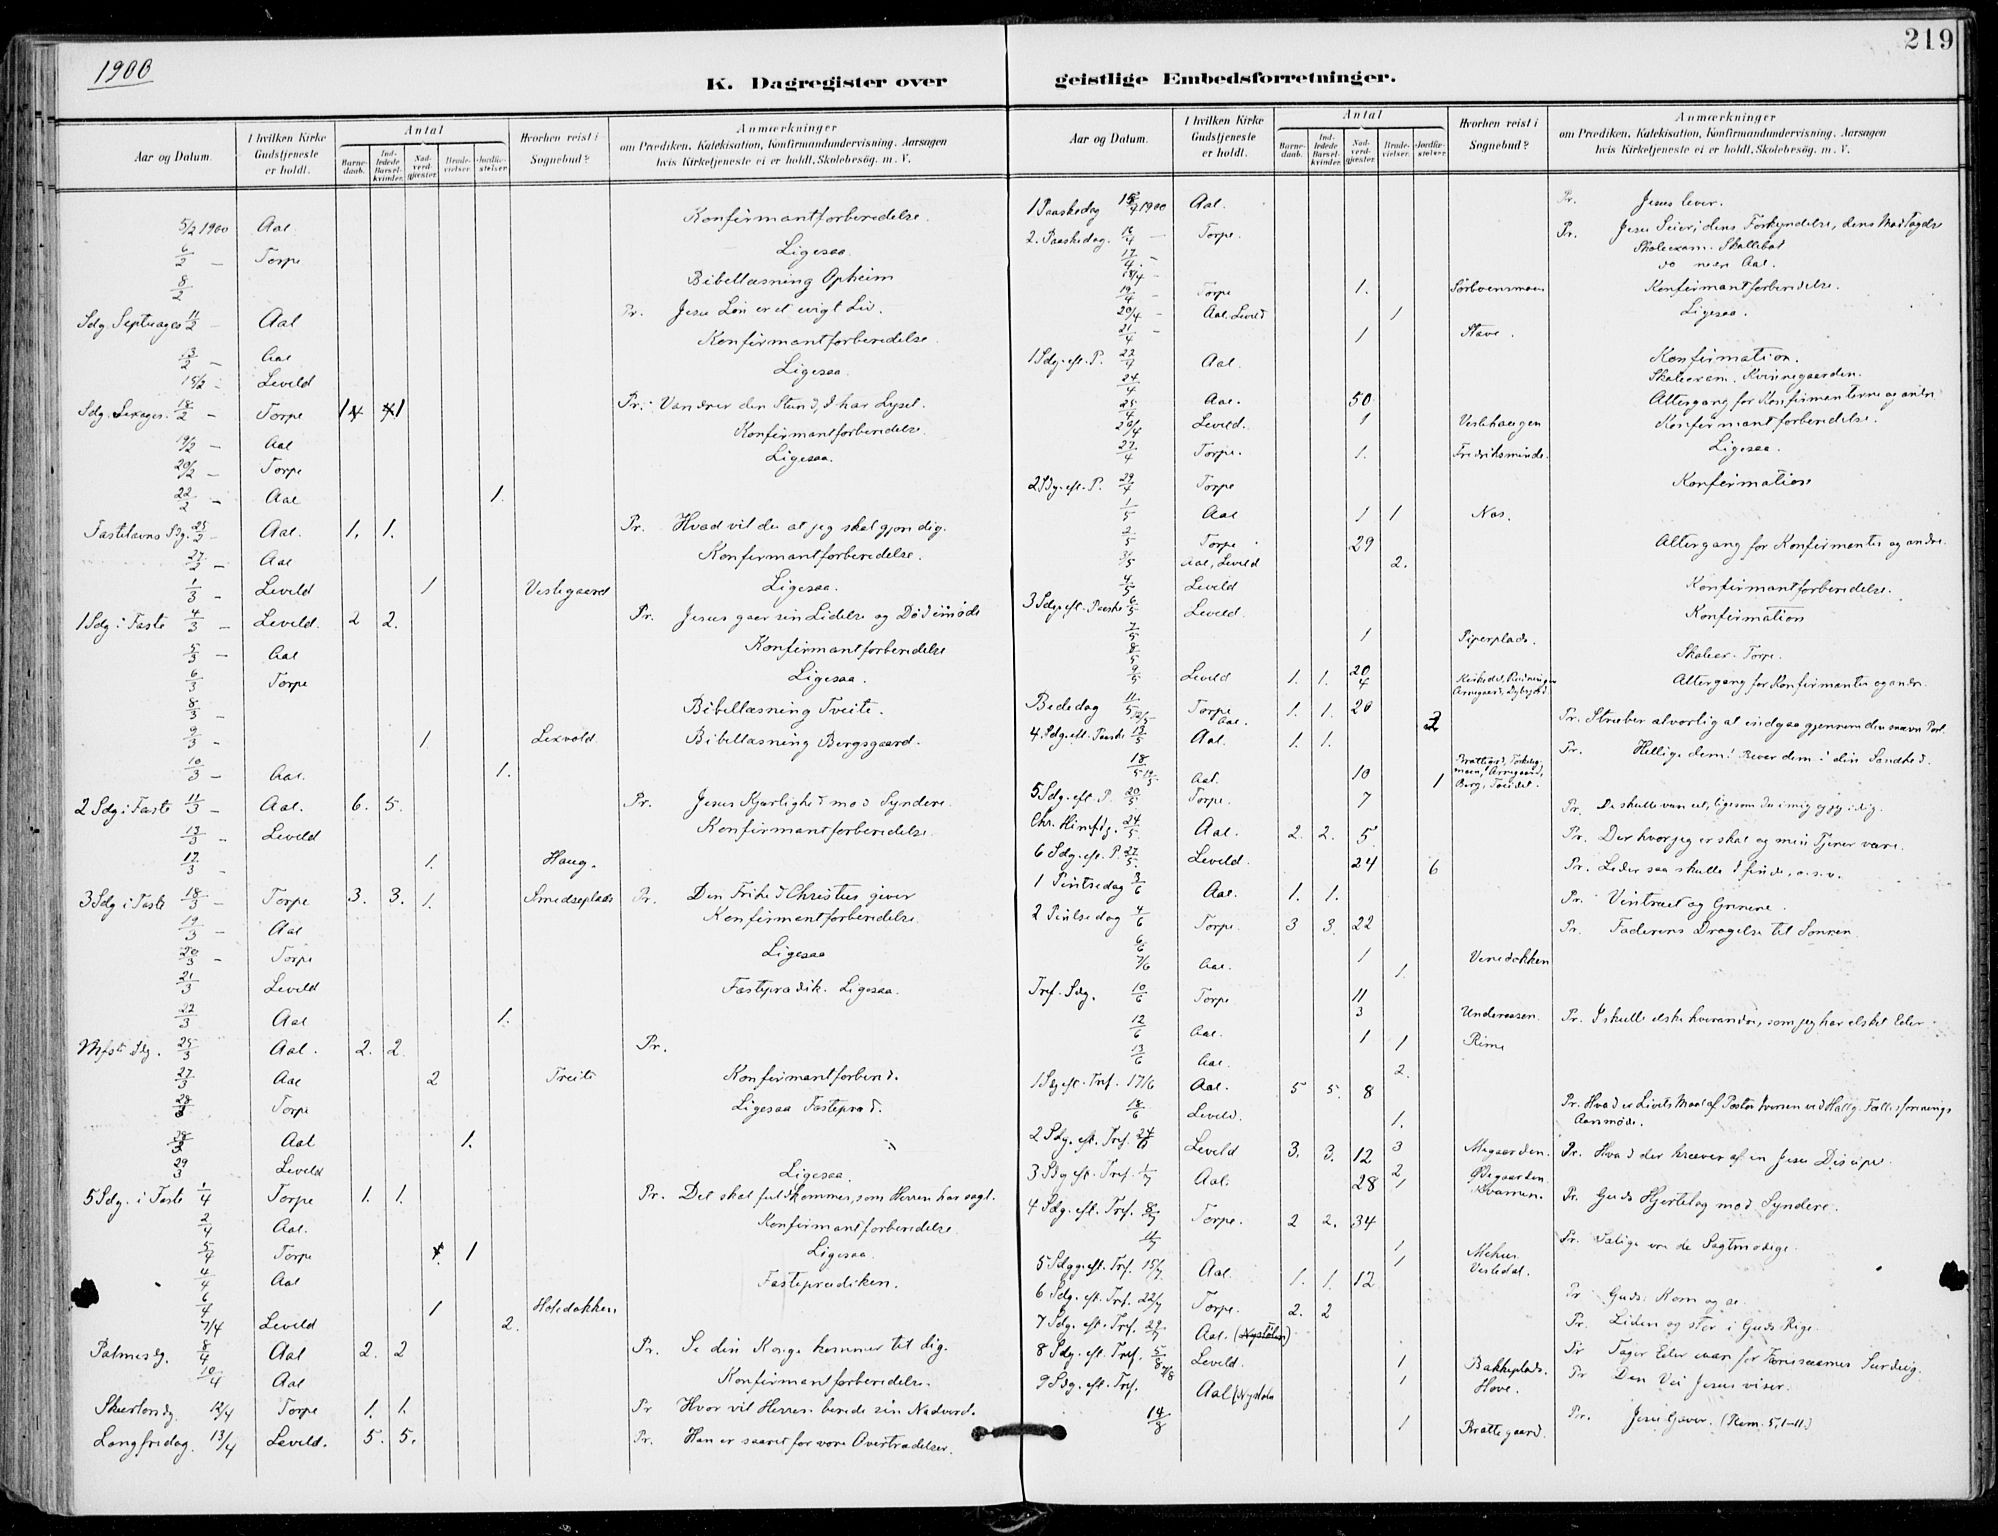 1900
219
K. Dagregister over
geistlige Embedsforretninger.
Aar og Datum.
I hvilken Kirke Gudstjeneste er holdt.
Antal
Barne-daab.
Ind-ledede Barsel-kvinder.
Nad-verd-gjæster.
Brude-vielser.
Jordfæ-stelser.
Hvorhen reist i Sognebud?
Anmærkninger
om Prædiken, Katekisation, Konfirmandundervisning. Aarsagen
hvis Kirketjeneste ei er holdt, Skolebesøg. m. V.
5/2 1900 Aal Konfirmantforberedelse.
6/2 — Torpe Ligesaa.
8/2 Bibellæsning Opheim
Sdg. Septuages 11/2 — Aal Pr. Jesu Løn er et evigt Liv.
Konfirmantforberedelse.
13/2 — Aal Ligesaa.
15/2 — Leveld
Sdg. Sexages. 18/2 — Torpe Pr. Vandrer den Stund, I har Lyset.
19/2 — Aal Konfirmantforberedelse.
20/2 — Torpe Ligesaa.
22/2 — Aal 1.
Fastelavns Sdg. 25/2 — Aal. 1. 1. Pr. Hvad vil du at jeg skal gjøre dig.
27/2 — Aal Konfirmantforberedelse.
1/3 — Leveld 1 Vestegaard Ligesaa.
1 Sdg i Faste 4/3 — Leveld. 2 2. Pr. Jesus gaar sin Lidelse og Død imøde
5/3 — Aal Konfirmantforberedelse
6/3 Torpe Ligesaa.
8/3 — Bibellæsning Tveite.
9/3 — 1. Lexvold. Bibellæsning Bergsgaard.
10/3 — Aal. 1.
2 Sdg i Faste 11/3 — Aal. 6. 5. Pr. Jesus Kjærlighed mod Syndere.
13/3 — Leveld Konfirmantforberedelse.
17/3 — 1. Haug.
3 Sdg i Faste 18/3 — Torpe 3. 3. 1. Smedseplads Pr. Den Frihed Christus giver
19/3 — Aal Konfirmantforberedelse.
20/3 — Torpe Ligesaa
21/3 Leveld Fasteprædik. Ligesaa.
22/3 Aal 1.
Mfst Sdg. 25/3 Aal. 2. 2. Pr.
27/3 Aal 2 Tveite Konfirmantforbered.
28/3 Torpe Ligesaa Fastepræd.
Aal 1.
29/3 Leveld Ligesaa.
5 Sdg. i Faste 1/4 Torpe 1. 1. Pr. Det skal fuldkommes, som Herren har sagt.
2/4 Aal. Konfirmantforberedelse.
5/4 Torpe 1 Ligesaa.
4/4 Aal Fasteprædiken.
6/4 1 Holedokken
7/4 Leveld 2.
Palmesdg. 8/4 Aal 2. 2 Pr. Se din Konge kommer til dig.
10/4 Aal Konfirmantforberedelse.
Skærtorsdg. 12/4 Torpe 1. 1. Pr Hvor vil Herren berede sin Nadverd.
Langfredag. 13/4 Leveld. 5. 5. Pr. Han er saaret for vore Overtrædelser.
Aar og Datum.
I hvilken Kirke Gudstjeneste er holdt.
Antal
Barne-daab.
Ind-ledede Barsel-kvinder.
Nad-verd-gjæster.
Brude-vielser.
Jordfæ-stelser.
Hvorhen reist i Sognebud?
Anmærkninger
om Prædiken, Katekisation, Konfirmandundervisning. Aarsagen
hvis Kirketjeneste ei er holdt, Skolebesøg. m. V.
1 Paaskedag 15/4 1900 Aal. Pr. Jesus lever.
2. Paaskedag. 16/4 — Torpe. Pr. Jesu Seier, dens Forkyndelse, dens Modtagelse
17/4 — Skoleexam.
18/4 — Aal.
19/4 — Torpe 1. Konfirmantforberedelse.
20/4 — Aal. Leveld 1 Ligesaa.
21/4 — 1 Stave.
1 Sdg. eft. P. 22/4 Aal. Konfirmation.
24/4 Skoleexam. Kvinnegaarden.
25/4 Aal. 50 Altergang for Konfirmanterne og andre
26/4 Leveld. 1 Veslehaugen Konfirmantforberedelse.
27/4 Torpe. 1. Fredriksminde. Ligesaa.
2 Sdg. eft. P. 29/4 Torpe Konfirmation
1/5 Aal 1 1 Nos.
2/5 Torpe 29 Altergang for Konfirmanter og andre.
3/5 Aal, Leveld 2.
4/5 Leveld Konfirmantforberedelse.
3 Sdg. eft. Paaske 6/5 Leveld. Konfirmation
7/5 1 Piperplads.
8/5 Skoleex. Torpe.
9/5 Leveld 1. 1. 20 4 Altergang for Konfirmanter og andre.
Bededag 11/5 Torpe 1. 1. 20 Pr. Stræber alvorlig at indgaa gjennem den snævre Port.
12/5 Aal.
4. Sdg. eft. Paaske 13/5 Aal. 1. 1. Pr. Hellige dem i din Sandhed.
18/5 19/5 Aal. 10 1
5 Sdg. eft. P. 20/5 Torpe. 7 Pr. De skulle være eet, ligesom du i mig og jeg i dig.
Chr. Himfdg. 24/5 Aal. 2. 2. 5. Pr. Der hvor jeg er skal og min Tjener være.
6 Sdg. eft. P. 27/5 Leveld. 24 6 Pr. Leder saa skulle I finde, o.s.v.
1 Pintsedag 3/6 Aal. 1. 1. Pr. Vintræet og Grenene.
2 Pintsedag 4/6 Torpe. 3 3. 22 Pr. Faderens Dragelse til Sønnen.
6/6 1 Veredokken
7/6 Aal. 1.
Tref. Sdg. 10/6 Torpe 11 3 Underaasen. Pr. I skulle elske hverandre, som jeg har elsket Eder.
12/6 Aal. 1 1 Rime
13/6 Aal. 2.
1 Sdg eft. Tref. 17/6 Aal. 5 5. 8 Pr. Hvad er Livets Maal af Pastor Iversen ved Hallg. Fællesforenings
Aarsmøde.
18/6 Leveld. 1.
2 Sdg. eft. Tref. 24/6 Leveld 3. 3. 12 3 Megaarden. Pr. Hvad der kræver af en Jesu Discipel.
3 Sdg eft. Tref. 1/7 Aal. 28 2 1 Pr. Guds Hjertelag mod Syndere.
4 Sdg. eft. Tref. 8/7 Torpe. 2 2. 34 Pr. Salige ere de Sagtmodige.
11/7 1 Mehus
5 Sdg eft. Tref. 15/7 Aal. 1. 1. 12 1 Vestedal. Pr Guds
6 Sdg. eft. Tref. 22/7 Torpe. 2. 2 Pr. Liden og stor i Guds Rige.
7 Sdg. eft. Tref. 29/7 Aal. (Nystølen)
8 Sdg. eft. Tref. 5/8 Leveld. 1 Bakkeplads. Pr Tager Eder vare for Farisæernes Surdeig.
9 Sdg. eft. Tref. Aal (Nystølen 1 Hove. Pr Den Vei Jesus viser.
14/8 1 Brattegaard. Pr. Jesu Gaver. (Rom. 5, 1–11.)